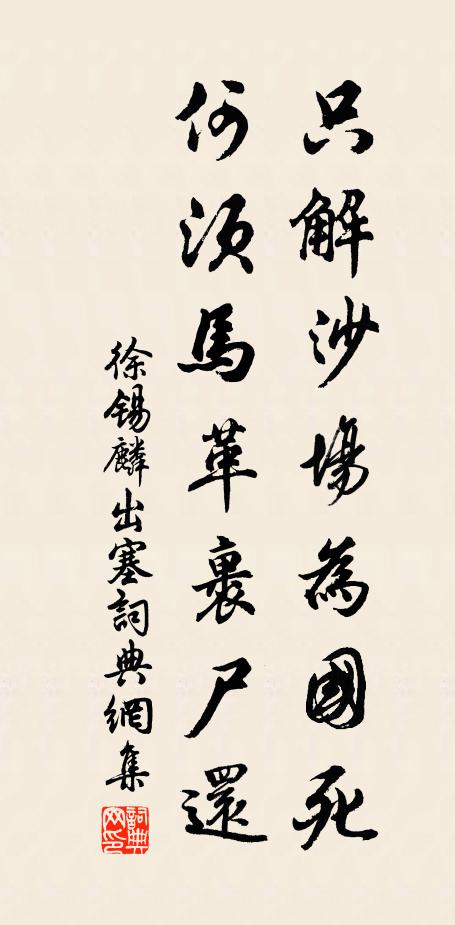 只解沙場為國死
何須馬革裹尸還
徐錫麟出塞詞典網集
詞典网印